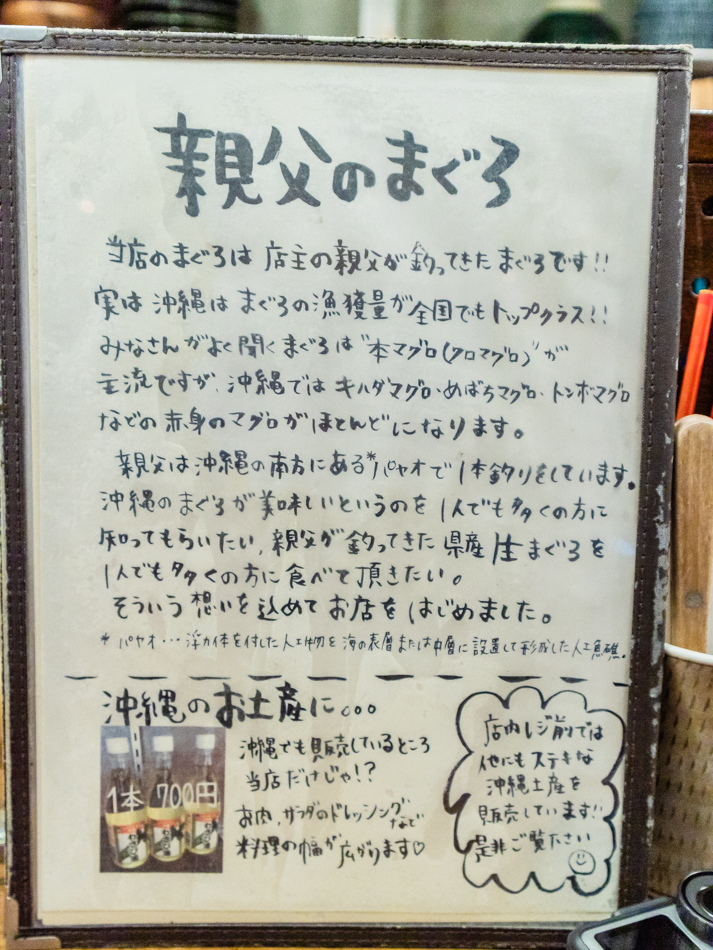 親父のまぐろ
当店のまぐろは 店主の親父が釣ってきた まぐろです!!
実は 沖縄は まぐろの漁獲量が全国でもトップクラス!!
みなさんがよく聞くまぐろは"本マグロ(クロマグロ)"が
主流ですが、沖縄では キハダマグロ・めばちマグロ・トンボマグロ
などの赤身のマグロがほとんどになります。
親父は沖縄の南方にある*パヤオで1本釣りをしています。
沖縄のまぐろが美味しいというのを 1人でも多くの方に
知ってもらいたい、親父が釣ってきた県産生まぐろを
1人でも多くの方に食べて頂きたい。
そういう想いを込めてお店をはじめました。
*パヤオ・・・浮力体を付した人工物を海の表層または中層に設置して形成した人工魚礁。
沖縄のお土産に。。。
1本 700円
沖縄でも販売しているところ
当店だけじゃ!?
お肉、サラダのドレッシングなどで
料理の幅が広がります♡
店内レジ前では
他にもステキな
沖縄土産を
販売しています!!
是非ご覧下さい